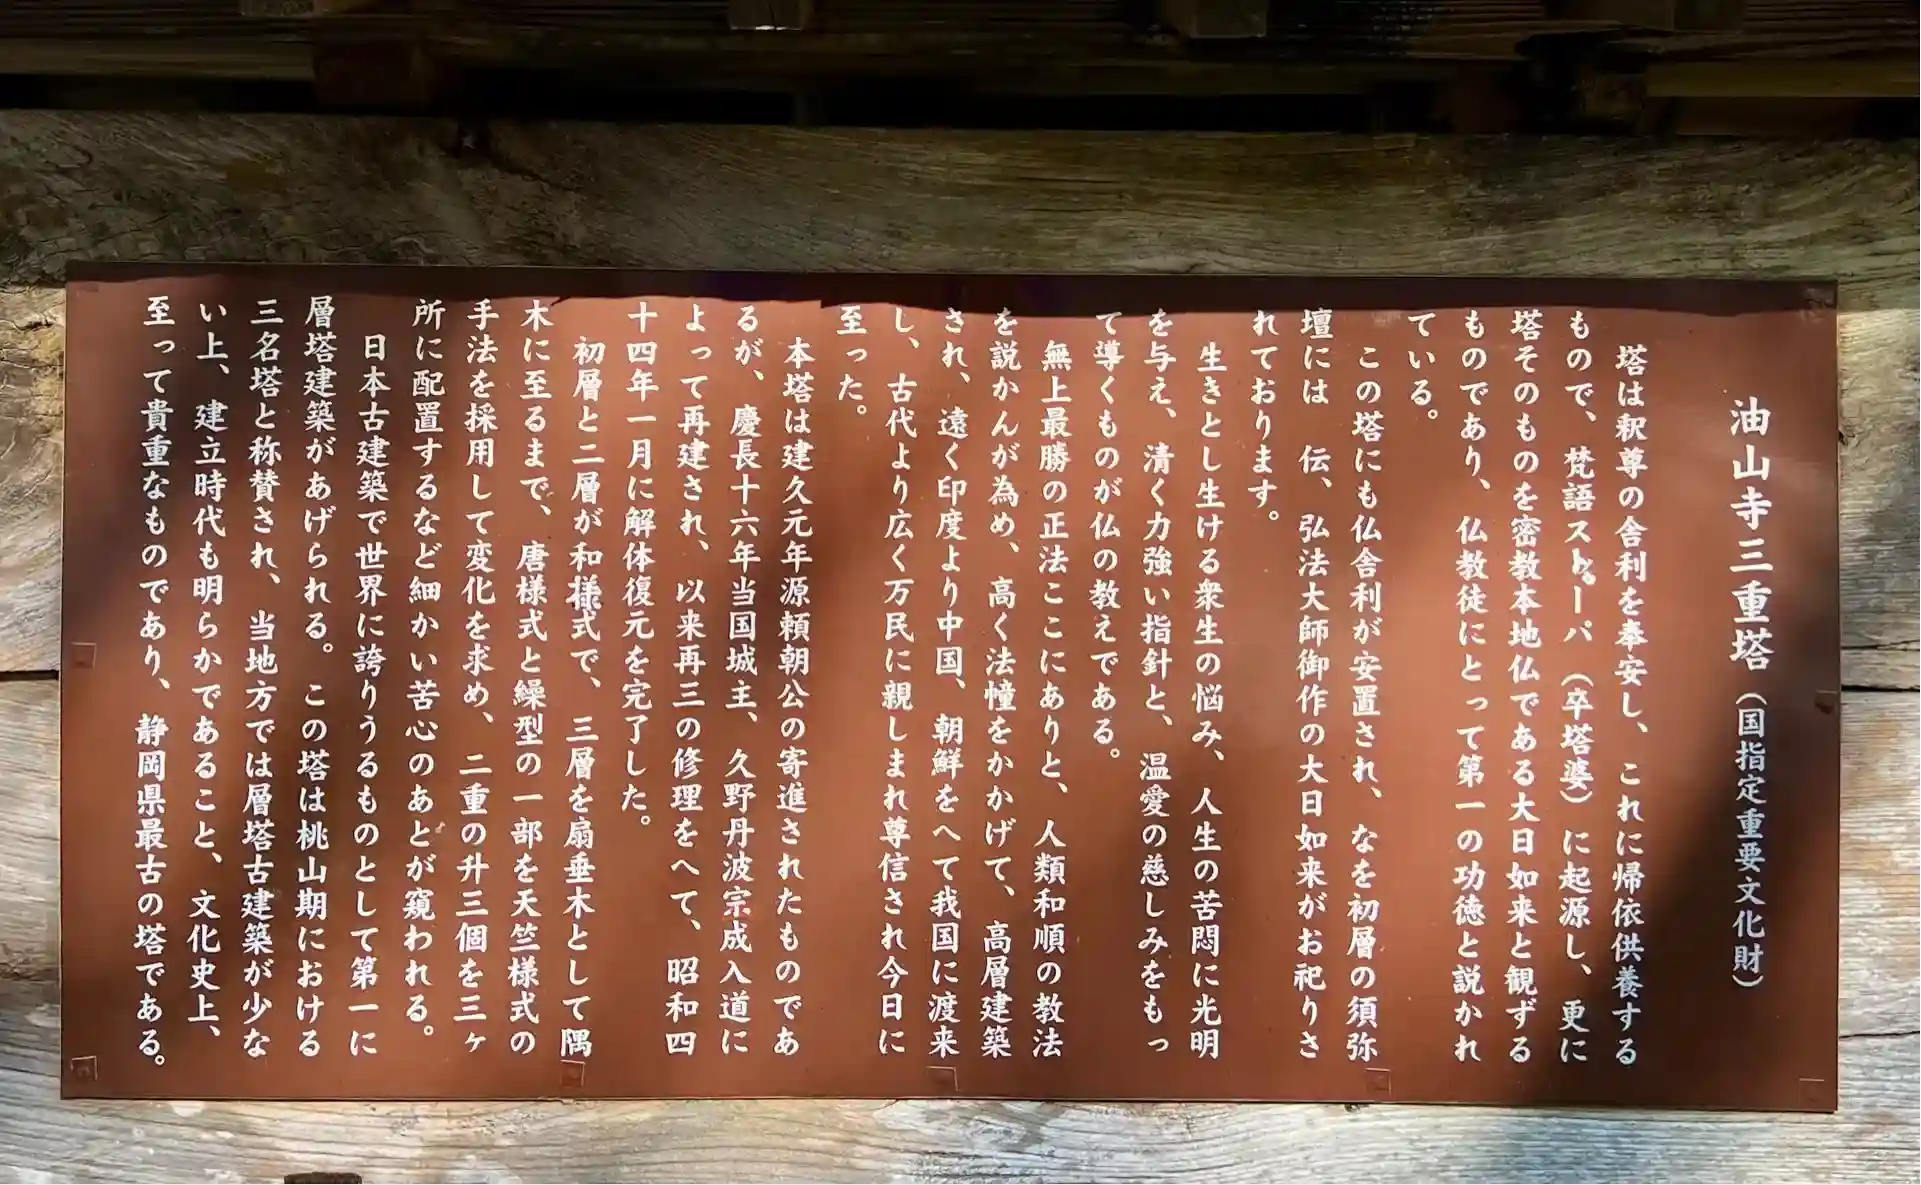 油山寺三重塔（国指定重要文化財）
塔は釈尊の舎利を奉安し、これに帰依供養する
もので、梵語ストゥーパ（卒塔婆）に起源し、更に
塔そのものを密教本地仏である大日如来と観ずる
ものであり、仏教徒にとって第一の功徳と説かれ
ている。
この塔にも仏舎利が安置され、なを初層の須弥
壇には　伝、弘法大師御作の大日如来がお祀りさ
れております。
生きとし生ける衆生の悩み、人生の苦悶に光明
を与え、清く力強い指針と、温愛の慈しみをもっ
て導くものが仏の教えである。
無上最勝の正法ここにありと、人類和順の教法
を説かんが為め、高く法幢をかかげて、高層建築
され、遠く印度より中国、朝鮮をへて我国に渡来
し、古代より広く万民に親しまれ尊信され今日に
至った。
本塔は建久元年源頼朝公の寄進されたものであ
るが、慶長十六年当国城主、久野丹波宗成入道に
よって再建され、以来再三の修理をへて、昭和四
十四年一月に解体復元を完了した。
初層と二層が和様式で、三層を扇垂木として隅
木に至るまで、唐様式と繰型の一部を天竺様式の
手法を採用して変化を求め、二重の升三個を三ヶ
所に配置するなど細かい苦心のあとが窺われる。
日本古建築で世界に誇りうるものとして第一に
層塔建築があげられる。この塔は桃山期における
三名塔と称賛され、当地方では層塔古建築が少な
い上、建立時代も明らかであること、文化史上、
至って貴重なものであり、静岡県最古の塔である。